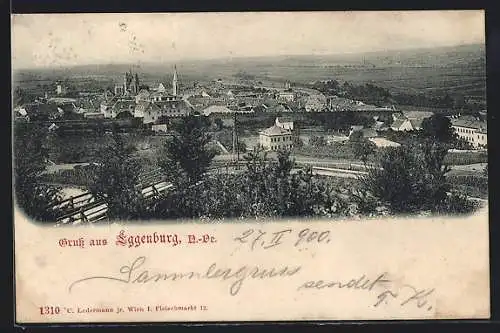 Gruß aus Eggenburg, N.-Oe. 27 II 900.
Sammlergruss sendet
1310 C. Ledermann jr. Wien I. Fleischmarkt 12.